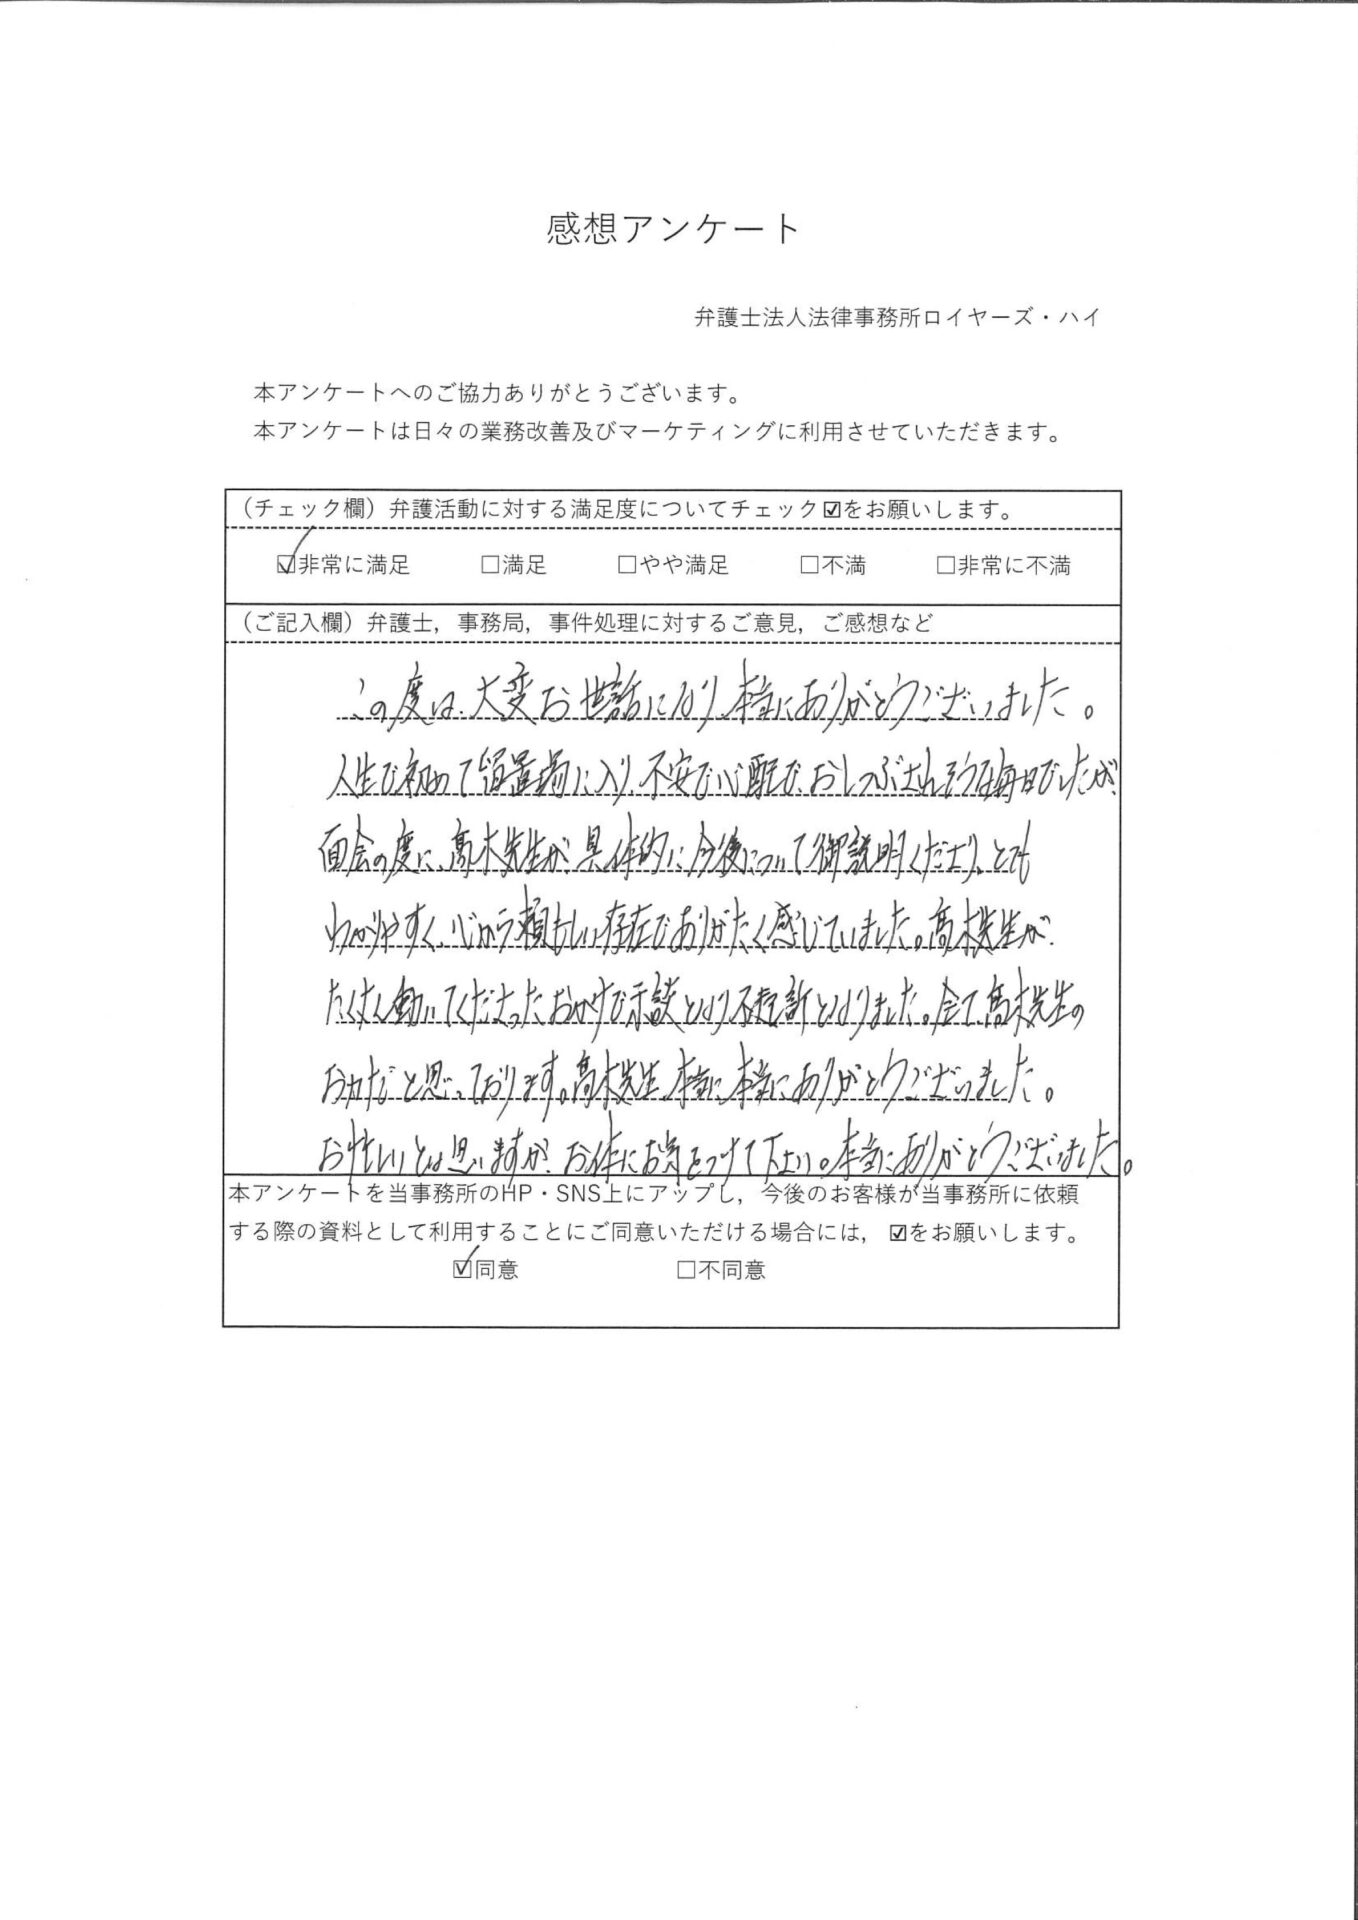 感想アンケート
弁護士法人法律事務所ロイヤーズ・ハイ
本アンケートへのご協力ありがとうございます。
本アンケートは日々の業務改善及びマーケティングに利用させていただきます。
（チェック欄）弁護活動に対する満足度についてチェック☑をお願いします。
☑非常に満足 □満足 □やや満足 □不満 □非常に不満
（ご記入欄）弁護士，事務局，事件処理に対するご意見，ご感想など
この度は、大変お世話になり、本当にありがとうございました。
人生で初めて留置場に入り、不安で心配で、おしつぶされそうな毎日でしたが、
面会の度に、髙木先生が、具体的に今後について御説明くださり、とても
わかりやすく、心から頼もしい存在でありがたく感じていました。髙木先生が、
たくさん動いてくださったおかげで示談となり不起訴となりました。全て、髙木先生の
おかげだと思っております。髙木先生、本当に、本当にありがとうございました。
お忙しいとは思いますが、お体にお気をつけて下さい。本当にありがとうございました。
本アンケートを当事務所のHP・SNS上にアップし，今後のお客様が当事務所に依頼
する際の資料として利用することにご同意いただける場合には，☑をお願いします。
☑同意 □不同意